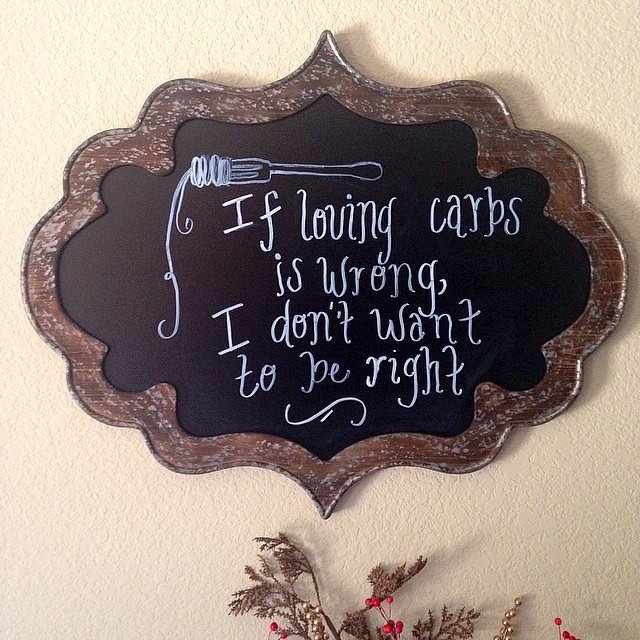 If loving carbs
is wrong,
I don't want
to be right